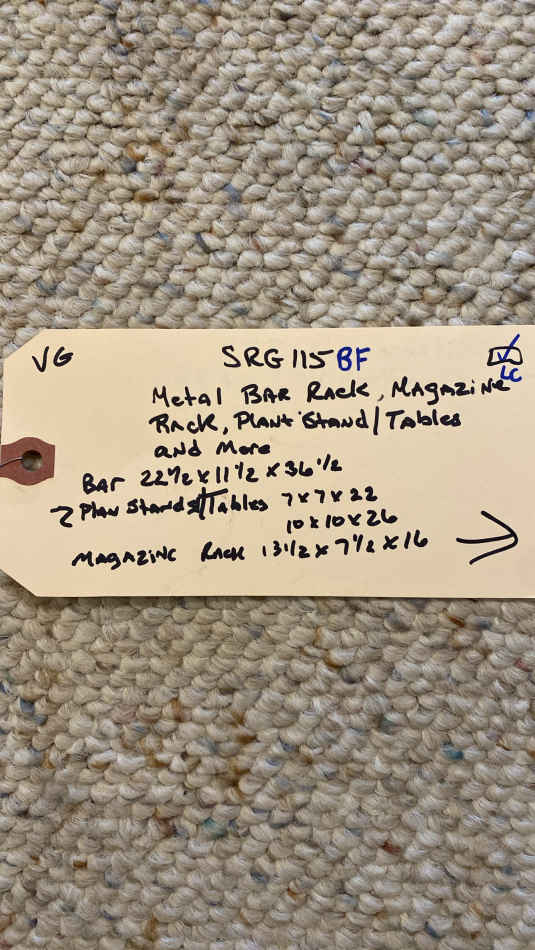 VG SRG115BF
LC
Metal Bar Rack, Magazine
Rack, Plant Stand/Tables
and More
Bar 22 1/2 x 11 1/2 x 36 1/2
2 Plan Stands/Tables 7 x 7 x 22
10 x 10 x 26
Magazine Rack 13 1/2 x 7 1/2 x 16